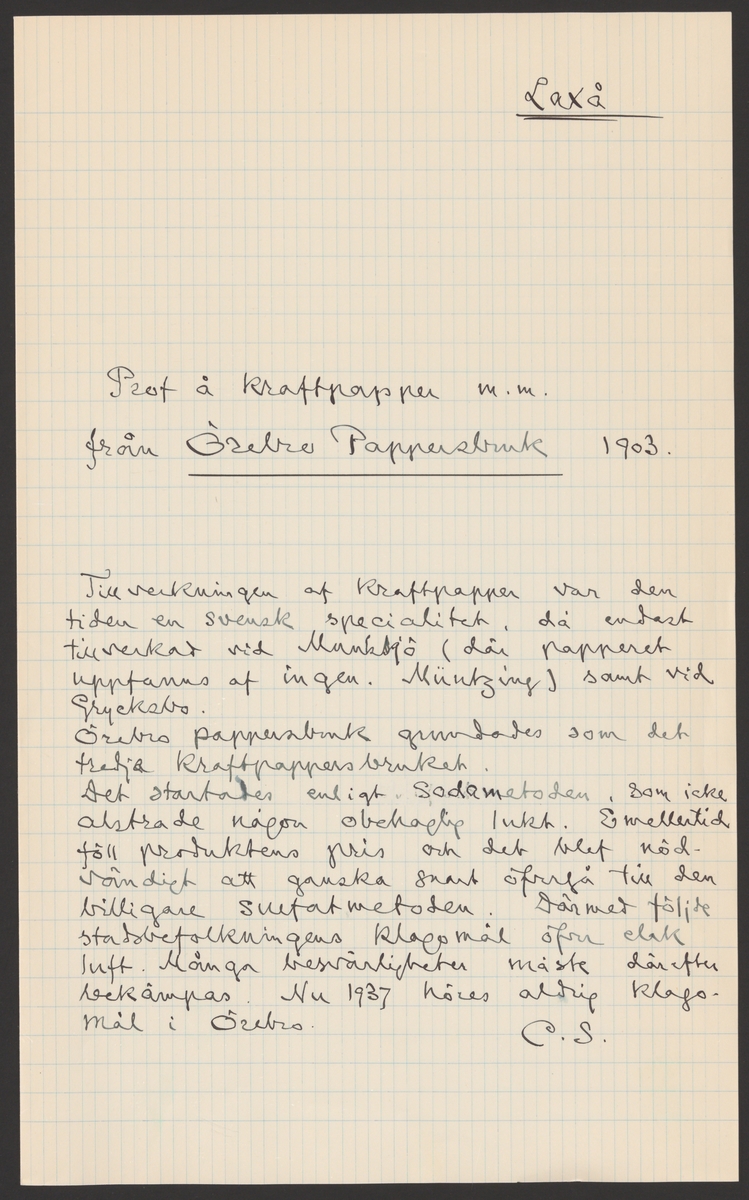 Laxå
Prof å kraftpapper m.m.
från Örebro Pappersbruk 1903.
Tillverkningen af kraftpapper var den
tiden en svensk specialitet, då endast
tillverkad vid Munksjö (där papperet
uppfanns af ingen. Müntzing) samt vid
Grycksbo.
Örebro pappersbruk grundades som det
tredje kraftpappersbruket.
Det startades enligt Sodametoden, som icke
alstrade någon obehaglig lukt. Emellertid
föll produktens pris och det blef nöd-
vändigt att ganska snart öfvergå till den
billigare Sulfatmetoden. Därmed följde
stadsbefolkningens klagomål öfver elak
luft. Många besvärligheter måste därefter
bekämpas. Nu 1937 höres aldrig klago-
mål i Örebro.
C. S.